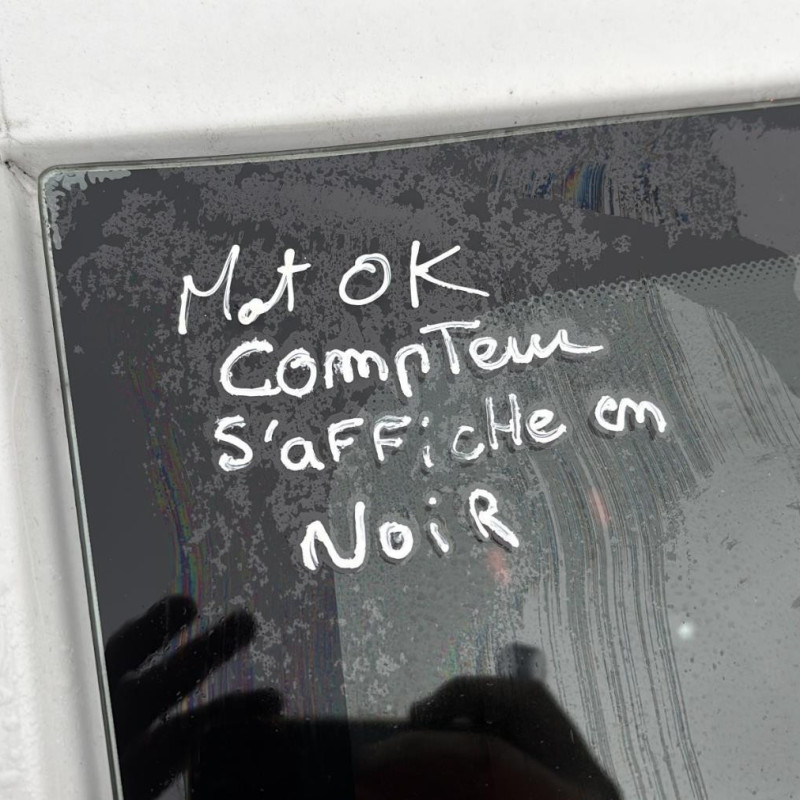 Mot OK
Compteur
S'affiche en
Noir